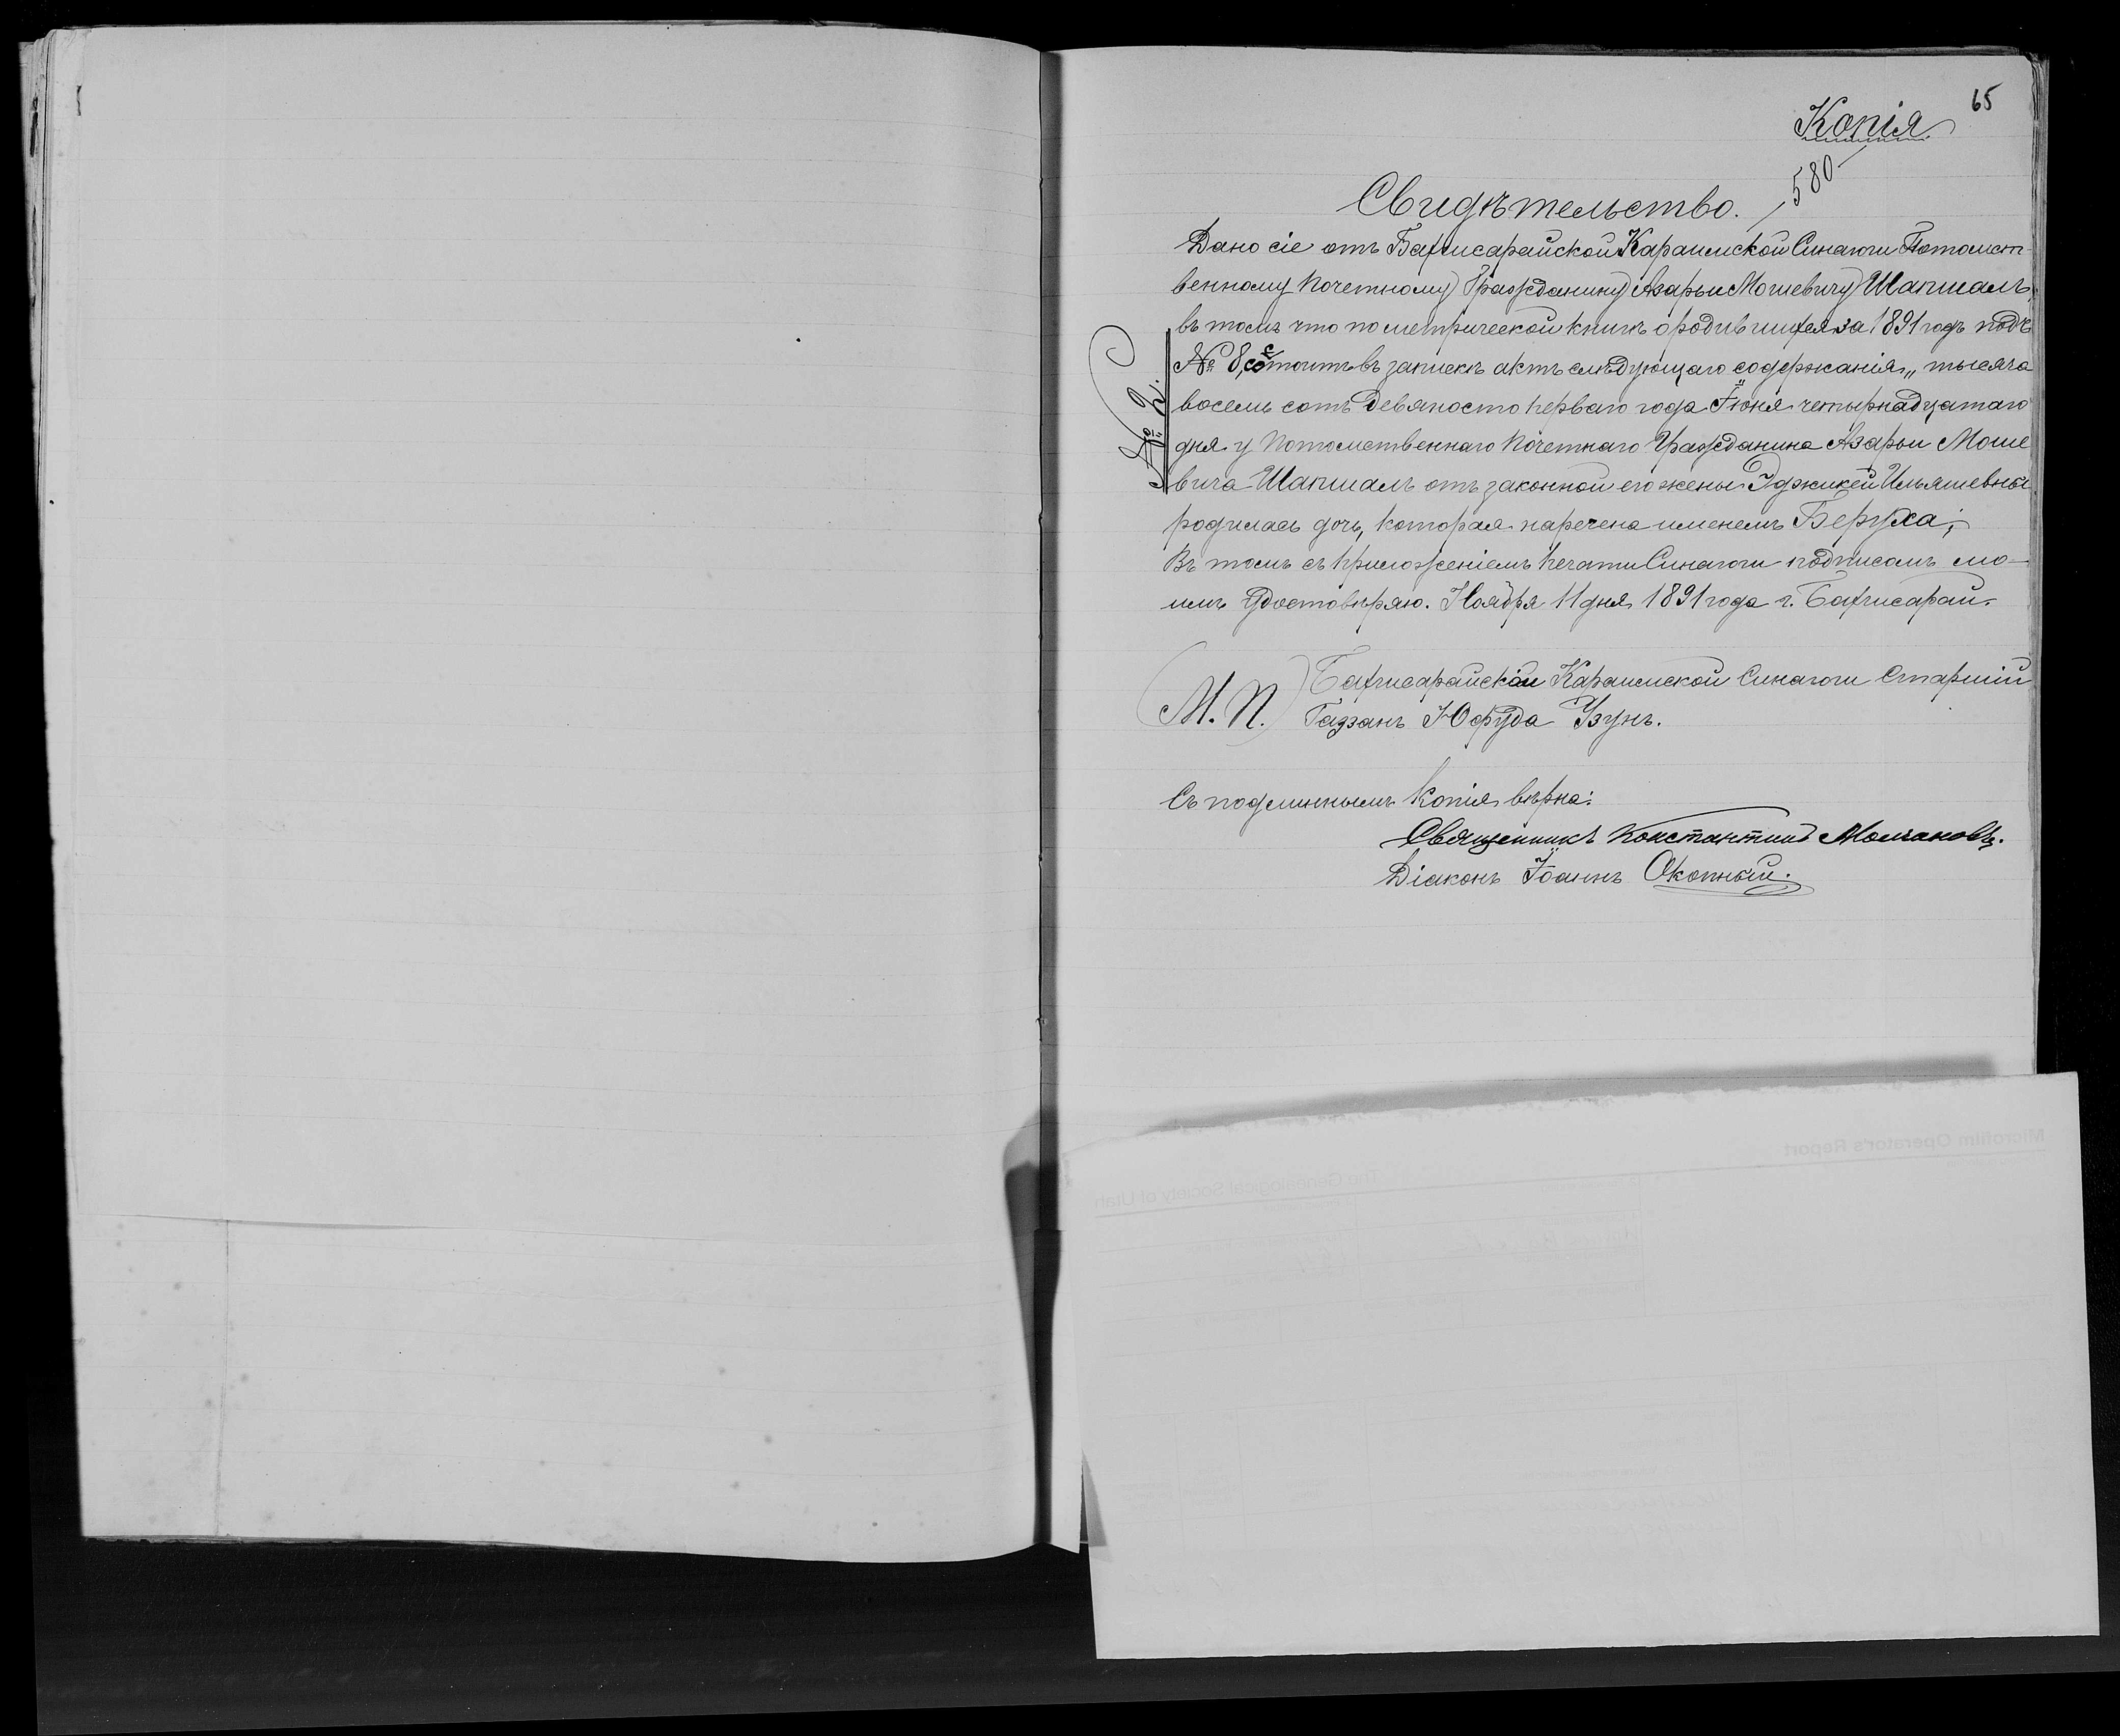 65
Копія
580
Свидѣтельство.
Дано сіе отъ Бахчисарайской Караимской Синагоги Потомст-
венному Почетному Гражданину Азарьи Мошевичу Шапшалъ,
въ томъ что по метрической книгѣ о родившихся за 1891 годъ подъ
№ 8, состоитъ въ записи актъ слѣдующаго содержанія „тысяча
восемь сотъ девяносто перваго года Іюня четырнадцатаго
дня у Потомственнаго Почетнаго Гражданина Азарьи Моше
вича Шапшалъ отъ законной его жены Эджикей Ильяшевны
родилась дочь, которая наречена именемъ Беруха;
Въ томъ съ приложеніемъ печати Синагоги подписомъ мо-
имъ удостовѣряю. Ноября 11 дня 1891 года г. Бахчисарай.
№ 2.
(М. П.) Бахчисарайской Караимской Синагоги Старшій
Газзанъ Юфуда Узунъ.
Съ подлиннымъ копія вѣрна:
Священникъ Константинъ Молчановъ.
Діаконъ Іоаннъ Окопный.
Microfilm Operator's Report
The Genealogical Society of Utah